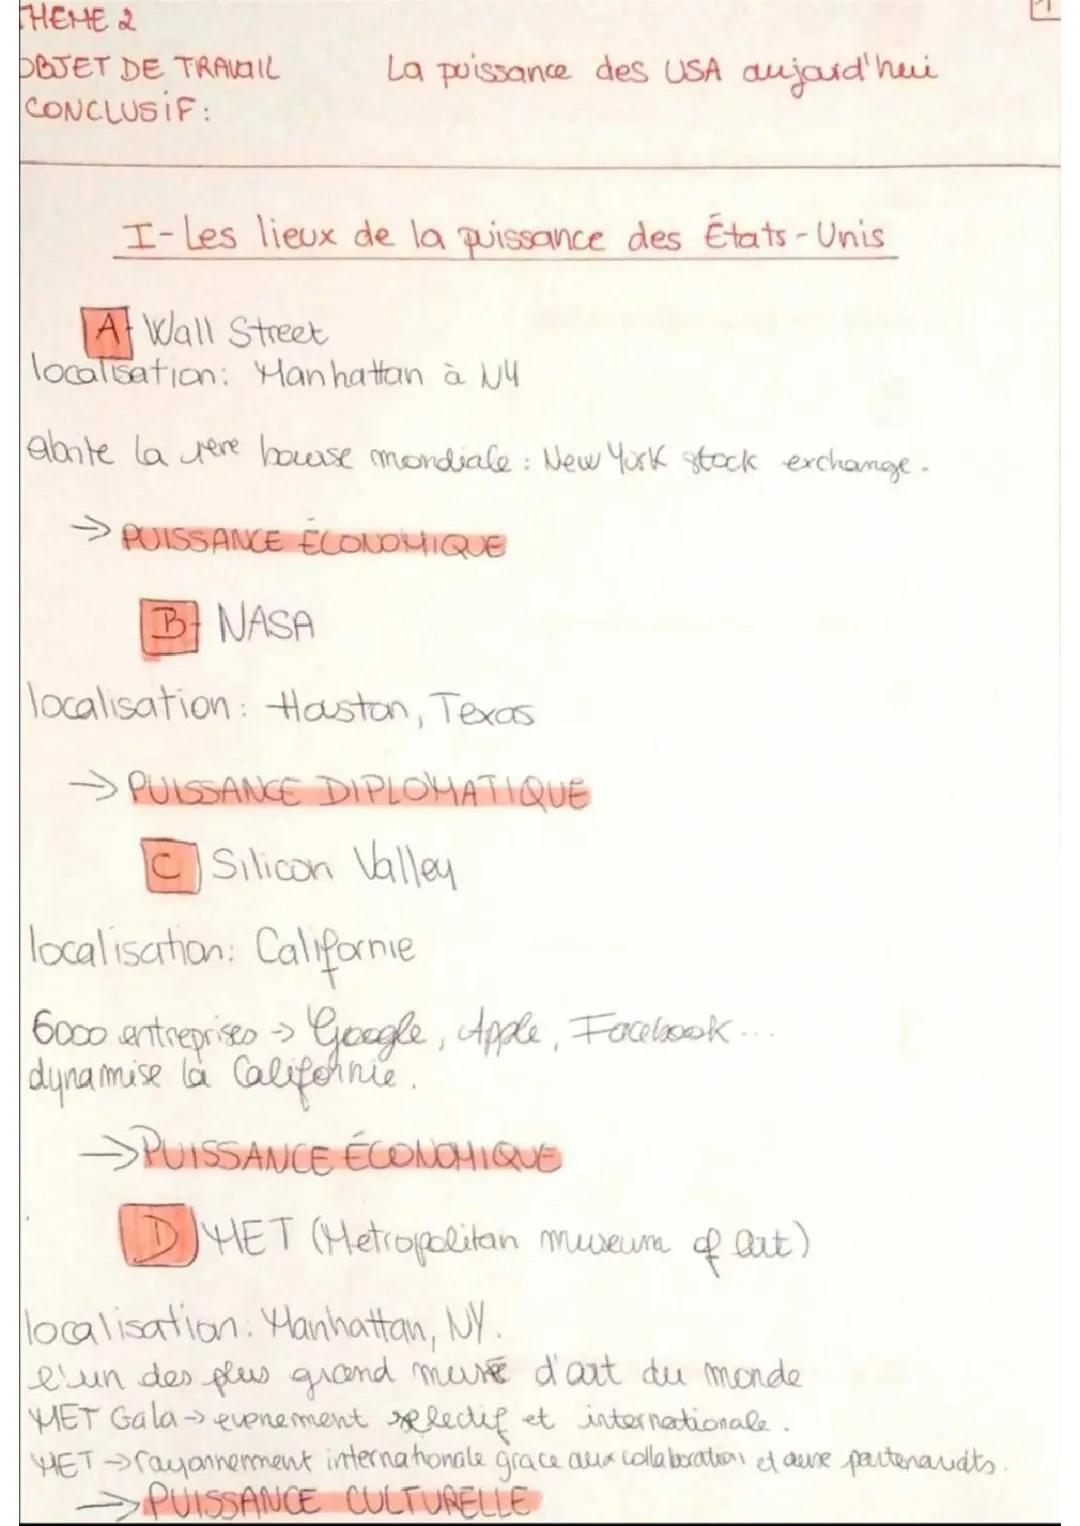 THEME 2
1
OBJET DE TRAVAIL La puissance des USA aujourd'hui
CONCLUSIF:
I- Les lieux de la puissance des États-Unis
A- Wall Street
localisation: Manhattan à NY
abrite la 1ère bourse mondiale : New York stock exchange.
→ PUISSANCE ÉCONOMIQUE
B- NASA
localisation: Houston, Texas
→ PUISSANCE DIPLOMATIQUE
C Silicon Valley
localisation: Californie
6000 entreprises → Google, Apple, Facebook...
dynamise la Californie.
→ PUISSANCE ÉCONOMIQUE
D MET (Metropolitan museum of art)
localisation: Manhattan, NY.
l'un des plus grand musé d'art du monde
MET Gala → evenement selectif et internationale.
MET → rayonnement internationale grace aux collaboration et aux partenariats.
→ PUISSANCE CULTURELLE